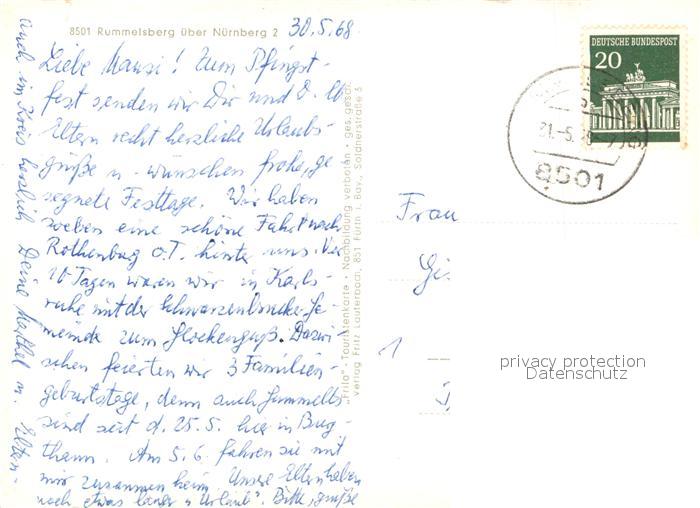 8501 Rummelsberg über Nürnberg 2
30.5.68
Liebe Mausi! Zum Pfingst-
fest senden wir Dir und d. lb.
Eltern recht herzliche Urlaubs-
grüße u. wünschen frohe, ge
segnete Festtage. Wir haben
soeben eine schöne Fahrt nach
Rothenburg o.T. hinter uns. Vor
10 Tagen waren wir in Karls-
ruhe mit der Schwarzenbrucker Ge
meinde zum Glockenguß. Dazwi-
schen feierten wir 3 Familien-
geburtstage, denn auch
sind seit d. 25.5. hier in Burg-
thann. Am 5.6. fahren sie mit
mir zusammen heim. Unsere Eltern haben
noch etwas länger "Urlaub". Bitte, grüße
auch im Kreis herzlich Deine u. Eltern-
"Frilo"-Touristenkarte · Nachbildung verboten · ges. gesch.
Verlag Fritz Lauterbach, 851 Fürth i. Bay., Soldnerstraße 5
DEUTSCHE BUNDESPOST
20
8501
Frau
1
privacy protection
Datenschutz